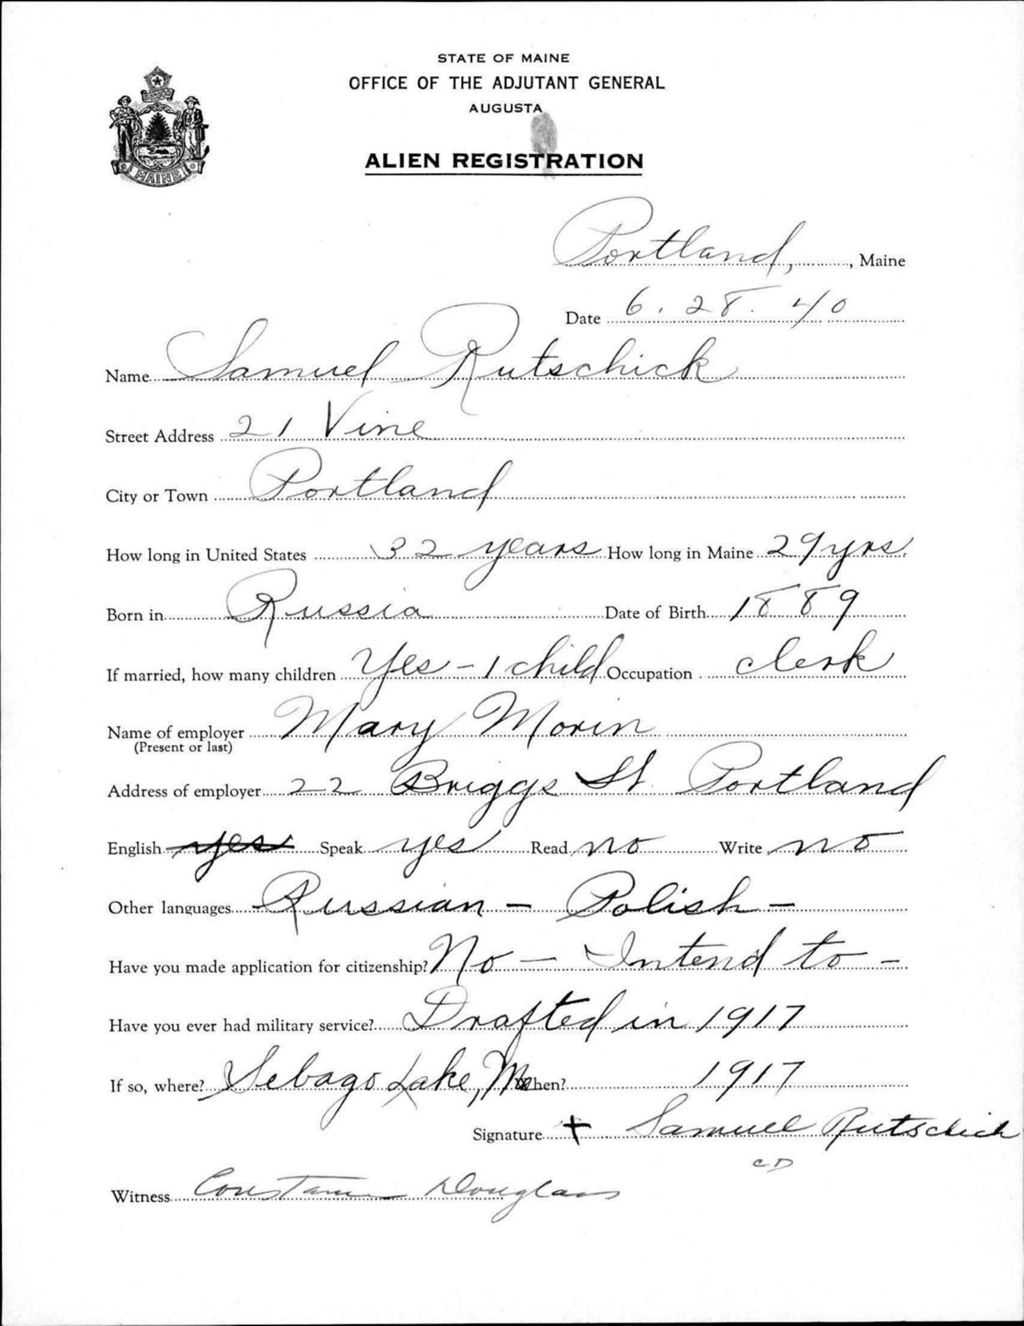 STATE OF MAINE
OFFICE OF THE ADJUTANT GENERAL
AUGUSTA
ALIEN REGISTRATION
MAINE
Portland, , Maine
Date 6. 28. 40
Name Samuel Rutschick
Street Address 21 Vine
City or Town Portland
How long in United States 32 years How long in Maine 29 yrs.
Born in Russia Date of Birth 1889
If married, how many children Yes - 1 child Occupation clerk
Name of employer Mary Morin
(Present or last)
Address of employer 22 Briggs St. Portland
English yes Speak yes Read no Write no
Other languages Russian - Polish -
Have you made application for citizenship? No - Intend to -
Have you ever had military service? Drafted in 1917
If so, where? Sebago Lake, Me When? 1917
Signature + Samuel Rutschick
CD
Witness Douglass